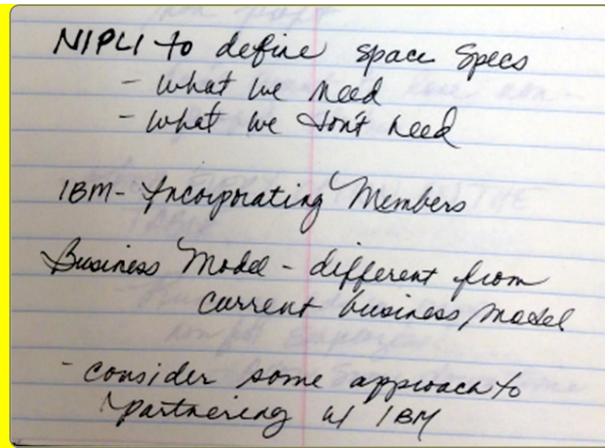 NIPLI to define space specs
- what we need
- what we don't need
IBM - Incorporating Members
Business Model - different from
current business model
- consider some approach to
partnering w/ IBM